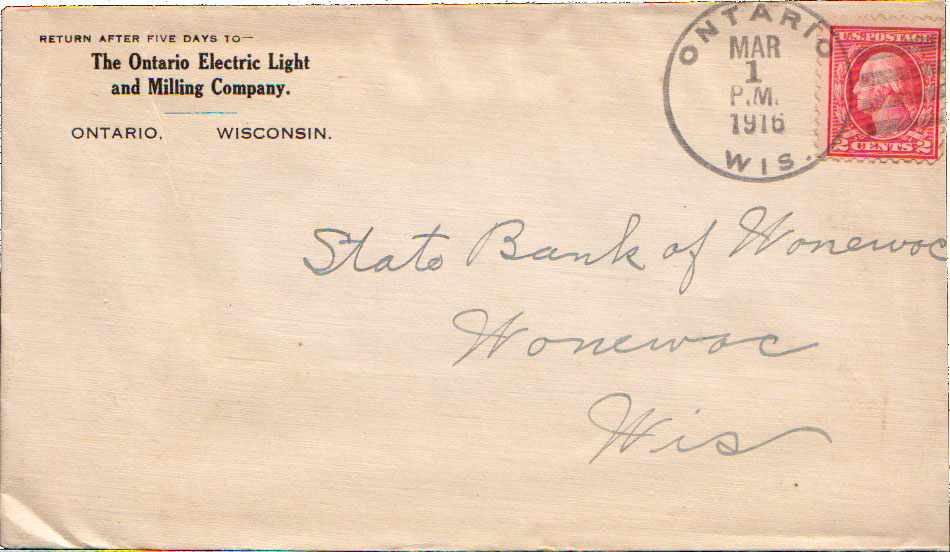 RETURN AFTER FIVE DAYS TO—
The Ontario Electric Light
and Milling Company.
ONTARIO, WISCONSIN.
ONTARIO
MAR
1
P.M.
1916
WIS.
U.S. POSTAGE
2 CENTS 2
State Bank of Wonewoc
Wonewoc
Wis